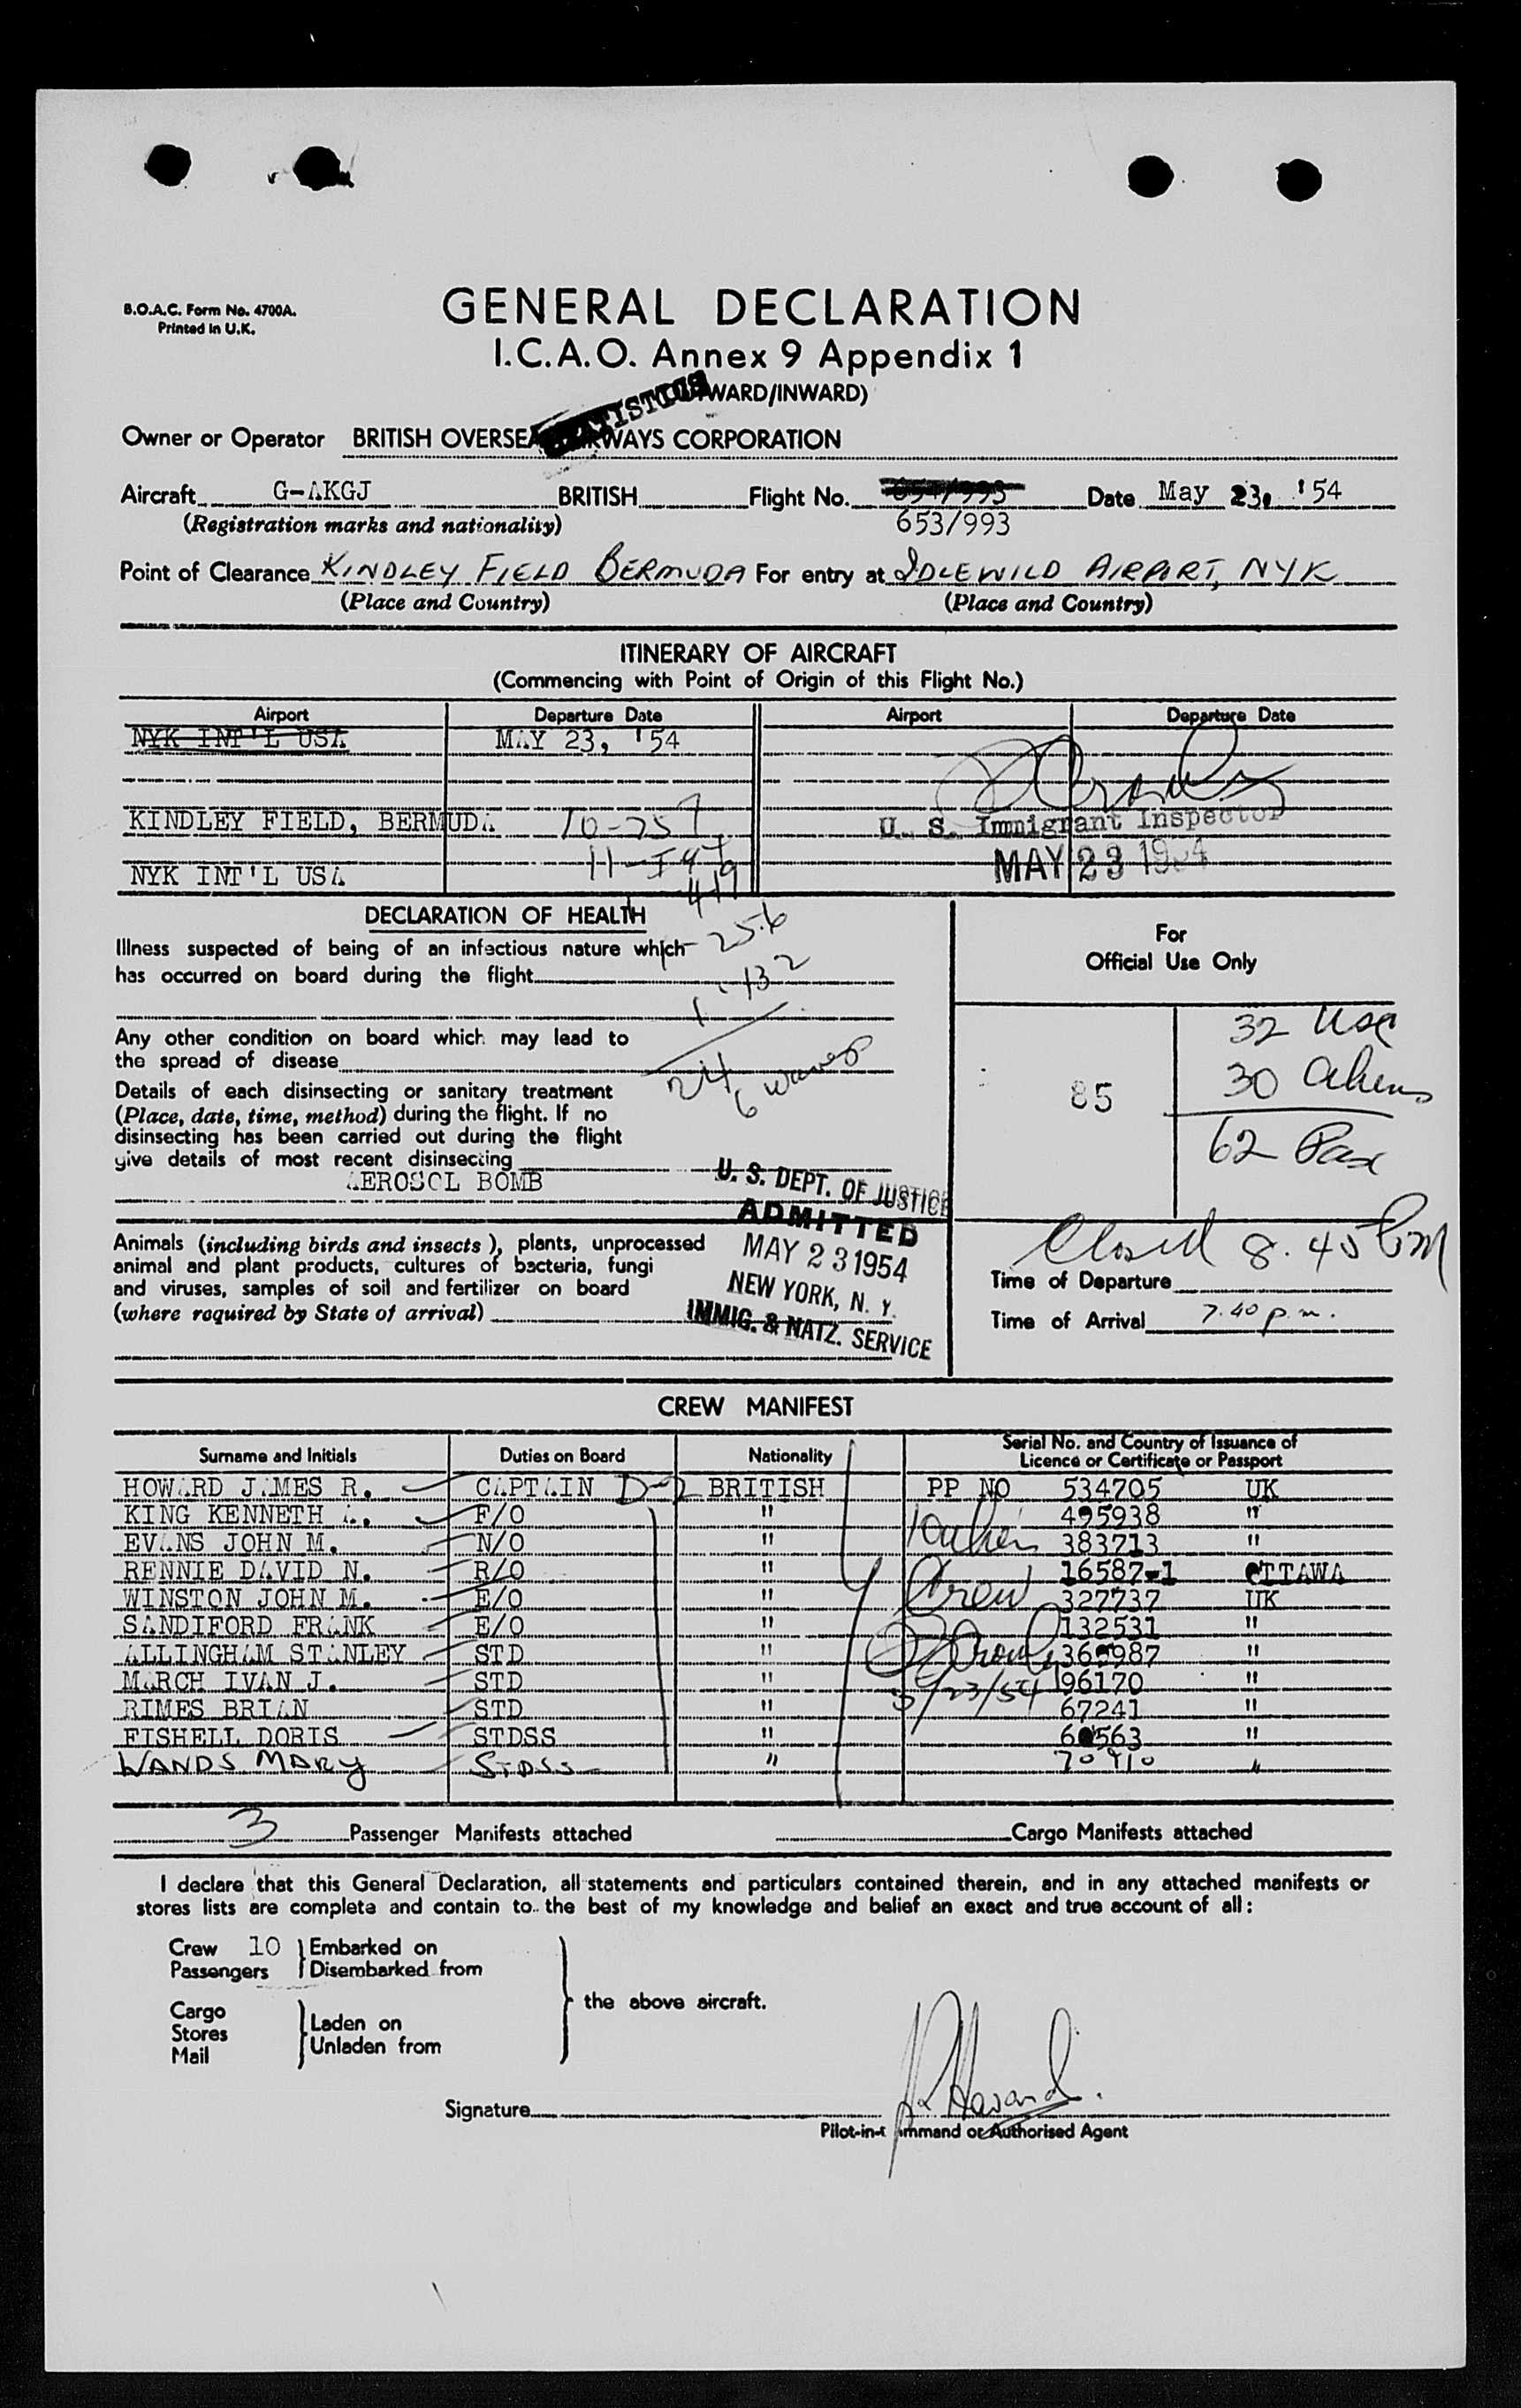 B.O.A.C. Form No. 4700A.
Printed in U.K.
GENERAL DECLARATION
I.C.A.O. Annex 9 Appendix 1
WARD/INWARD)
Owner or Operator BRITISH OVERSEA WAYS CORPORATION
Aircraft G-AKGJ BRITISH Flight No. 653/993 Date May 23, '54
(Registration marks and nationality)
Point of Clearance KINDLEY FIELD BERMUDA For entry at IDLEWILD AIRPORT, NYK
(Place and Country) (Place and Country)
ITINERARY OF AIRCRAFT
(Commencing with Point of Origin of this Flight No.)
Airport Departure Date Airport Departure Date
NYK INT'L USA MAY 23, '54
KINDLEY FIELD, BERMUDA
U. S. Immigrant Inspector
NYK INT'L USA
MAY 23 1954
DECLARATION OF HEALTH
Illness suspected of being of an infectious nature which
has occurred on board during the flight
Any other condition on board which may lead to
the spread of disease
Details of each disinsecting or sanitary treatment
(Place, date, time, method) during the flight. If no
disinsecting has been carried out during the flight
give details of most recent disinsecting
AEROSOL BOMB
24
For
Official Use Only
85
32 USC
30 Aliens
62 Pax
U. S. DEPT. OF JUSTICE
ADMITTED
MAY 23 1954
NEW YORK, N. Y.
IMMIG. & NATZ. SERVICE
Animals (including birds and insects), plants, unprocessed
animal and plant products, cultures of bacteria, fungi
and viruses, samples of soil and fertilizer on board
(where required by State of arrival)
Closed 8.45 PM
Time of Departure
Time of Arrival 7.40 p.m.
CREW MANIFEST
Surname and Initials Duties on Board Nationality Serial No. and Country of Issuance of
Licence or Certificate or Passport
HOWARD JAMES R. CAPTAIN D-2 BRITISH PP NO 534705 UK
KING KENNETH A. F/O " 495938 "
EVANS JOHN M. N/O " 383713 "
RENNIE DAVID N. R/O " 16587-1 OTTAWA
WINSTON JOHN M. E/O " 327737 UK
SANDIFORD FRANK E/O " 132531 "
ALLINGHAM STANLEY STD " 365987 "
MARCH IVAN J. STD " 196170 "
RIMES BRIAN STD " 67241 "
FISHELL DORIS STDSS " "
WANDS MARY STDSS " 70910 "
Crew
5/23/54
3 Passenger Manifests attached Cargo Manifests attached
I declare that this General Declaration, all statements and particulars contained therein, and in any attached manifests or
stores lists are complete and contain to the best of my knowledge and belief an exact and true account of all:
Crew 10 Embarked on
Passengers Disembarked from
the above aircraft.
Cargo
Stores
Mail
Laden on
Unladen from
Signature
Pilot-in-command or Authorised Agent